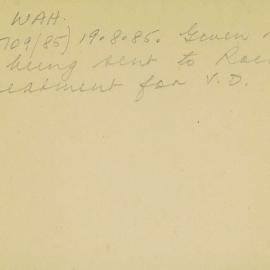 WAH.
709/85) 19.8.85. Given
being sent to
eatment for V.D.